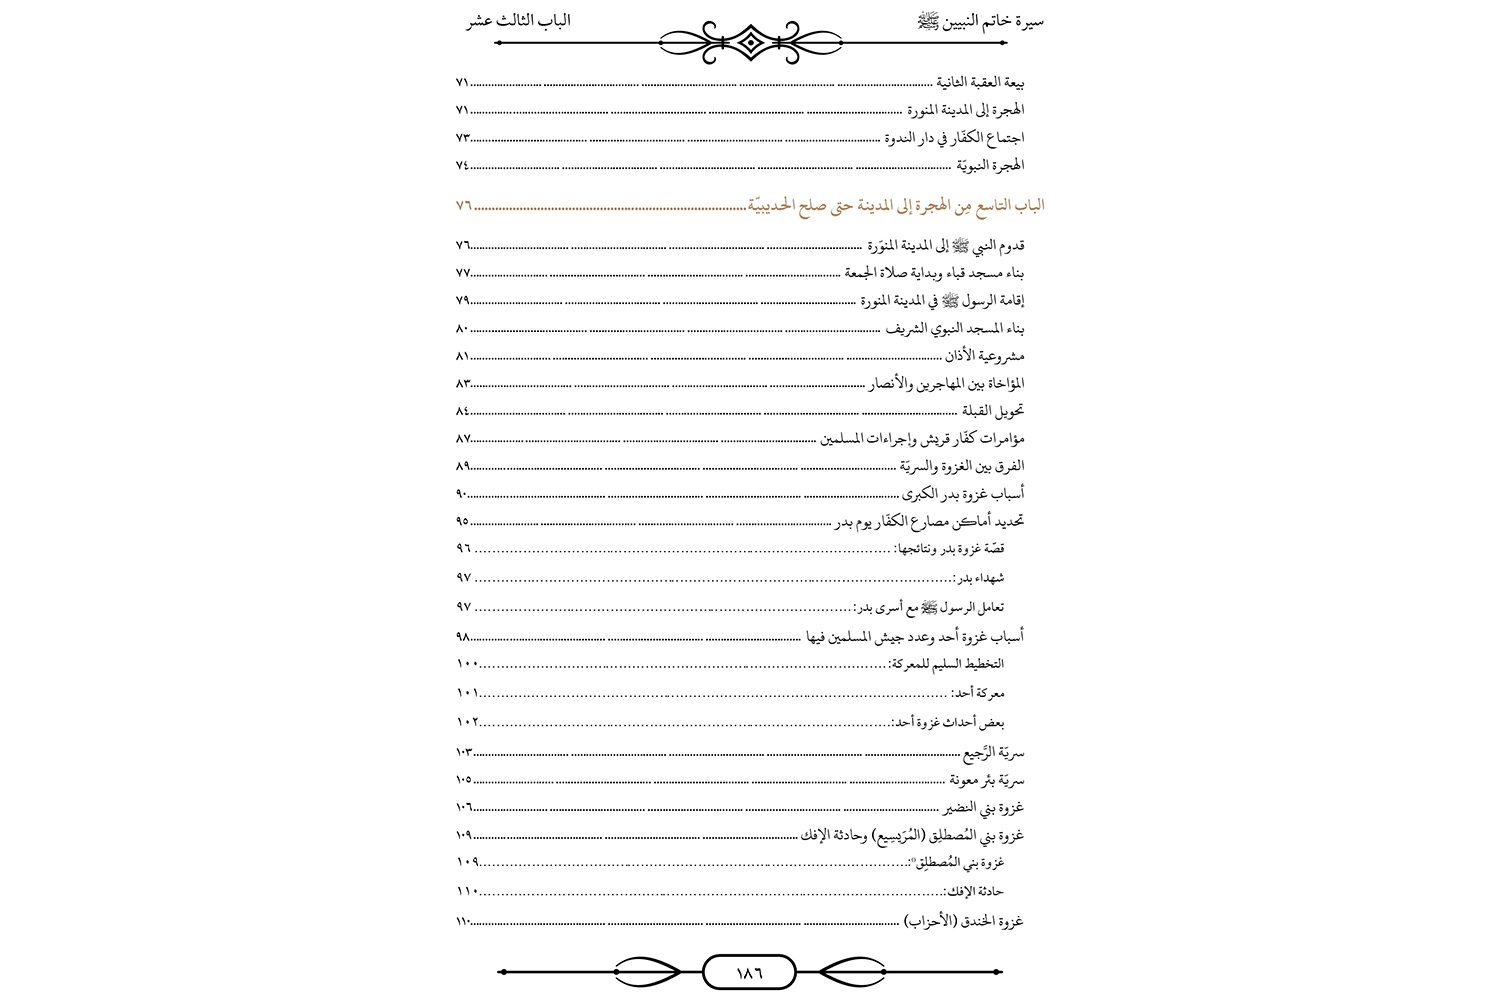 سيرة خاتم النبيين ﷺ الباب الثالث عشر
بيعة العقبة الثانية ٧١
الهجرة إلى المدينة المنورة ٧١
اجتماع الكفّار في دار الندوة ٧٣
الهجرة النبويّة ٧٤
الباب التاسع مِن الهجرة إلى المدينة حتى صلح الحديبيّة ٧٦
قدوم النبي ﷺ إلى المدينة المنوّرة ٧٦
بناء مسجد قباء وبداية صلاة الجمعة ٧٧
إقامة الرسول ﷺ في المدينة المنورة ٧٩
بناء المسجد النبوي الشريف ٨٠
مشروعية الأذان ٨١
المؤاخاة بين المهاجرين والأنصار ٨٣
تحويل القبلة ٨٤
مؤامرات كفّار قريش وإجراءات المسلمين ٨٧
الفرق بين الغزوة والسريّة ٨٩
أسباب غزوة بدر الكبرى ٩٠
تحديد أماكن مصارع الكفّار يوم بدر ٩٥
قصّة غزوة بدر ونتائجها: ٩٦
شهداء بدر: ٩٧
تعامل الرسول ﷺ مع أسرى بدر: ٩٧
أسباب غزوة أحد وعدد جيش المسلمين فيها ٩٨
التخطيط السليم للمعركة: ١٠٠
معركة أحد: ١٠١
بعض أحداث غزوة أحد: ١٠٢
سريّة الرَّجيع ١٠٣
سريّة بئر معونة ١٠٥
غزوة بني النضير ١٠٦
غزوة بني المُصطلِق (المُرَيسِيع) وحادثة الإفك ١٠٩
غزوة بني المُصطلِق: ١٠٩
حادثة الإفك: ١١٠
غزوة الخندق (الأحزاب) ١١٠
١٨٦